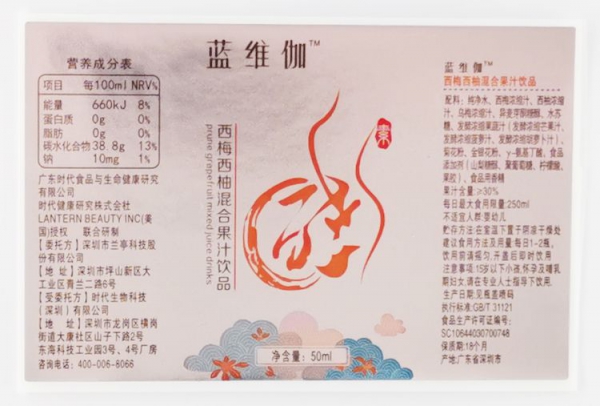 营养成分表
项目 每100ml NRV%
能量 660kJ 8%
蛋白质 0g 0%
脂肪 0g 0%
碳水化合物 38.8g 13%
钠 10mg 1%
广东时代食品与生命健康研究
有限公司
时代健康研究株式会社
LANTERN BEAUTY INC(美
国)授权 联合研制
【委托方】深圳市兰亭科技股
份有限公司
【地 址】深圳市坪山新区大
工业区青兰二路6号
【受委托方】时代生物科技
(深圳)有限公司
【地 址】深圳市龙岗区横岗
街道大康社区山子下路2号
东海科技工业园3号、4号厂房
咨询电话：400-006-8066
蓝维伽™
西梅西柚混合果汁饮品
prune grapefruit mixed juice drinks
素
净含量：50ml
蓝维伽™
西梅西柚混合果汁饮品
配料：纯净水、西梅浓缩汁、西柚浓缩
汁、乌梅浓缩汁、异麦芽酮糖醇、水苏
糖、发酵浓缩果蔬汁(发酵浓缩芒果汁、
发酵浓缩菠萝汁、发酵浓缩胡萝卜汁)、
菊花粉、金银花粉、γ-氨基丁酸、食品
添加剂(山梨糖醇、聚葡萄糖、柠檬酸、
果胶)、食品用香精
果汁含量:≥30%
每日最大食用限量:250ml
不适宜人群:婴幼儿
贮存方法:在室温下置于阴凉干燥处
建议食用方法及用量:每日1-2瓶,
饮用前请摇匀,开盖后即时饮用
注意事项:15岁以下小孩,怀孕及哺乳
期妇女,请在专业人士指导下饮用.
生产日期:见瓶盖喷码
执行标准:GB/T 31121
食品生产许可证编号:
SC10644030700748
保质期:18个月
产地:广东省深圳市